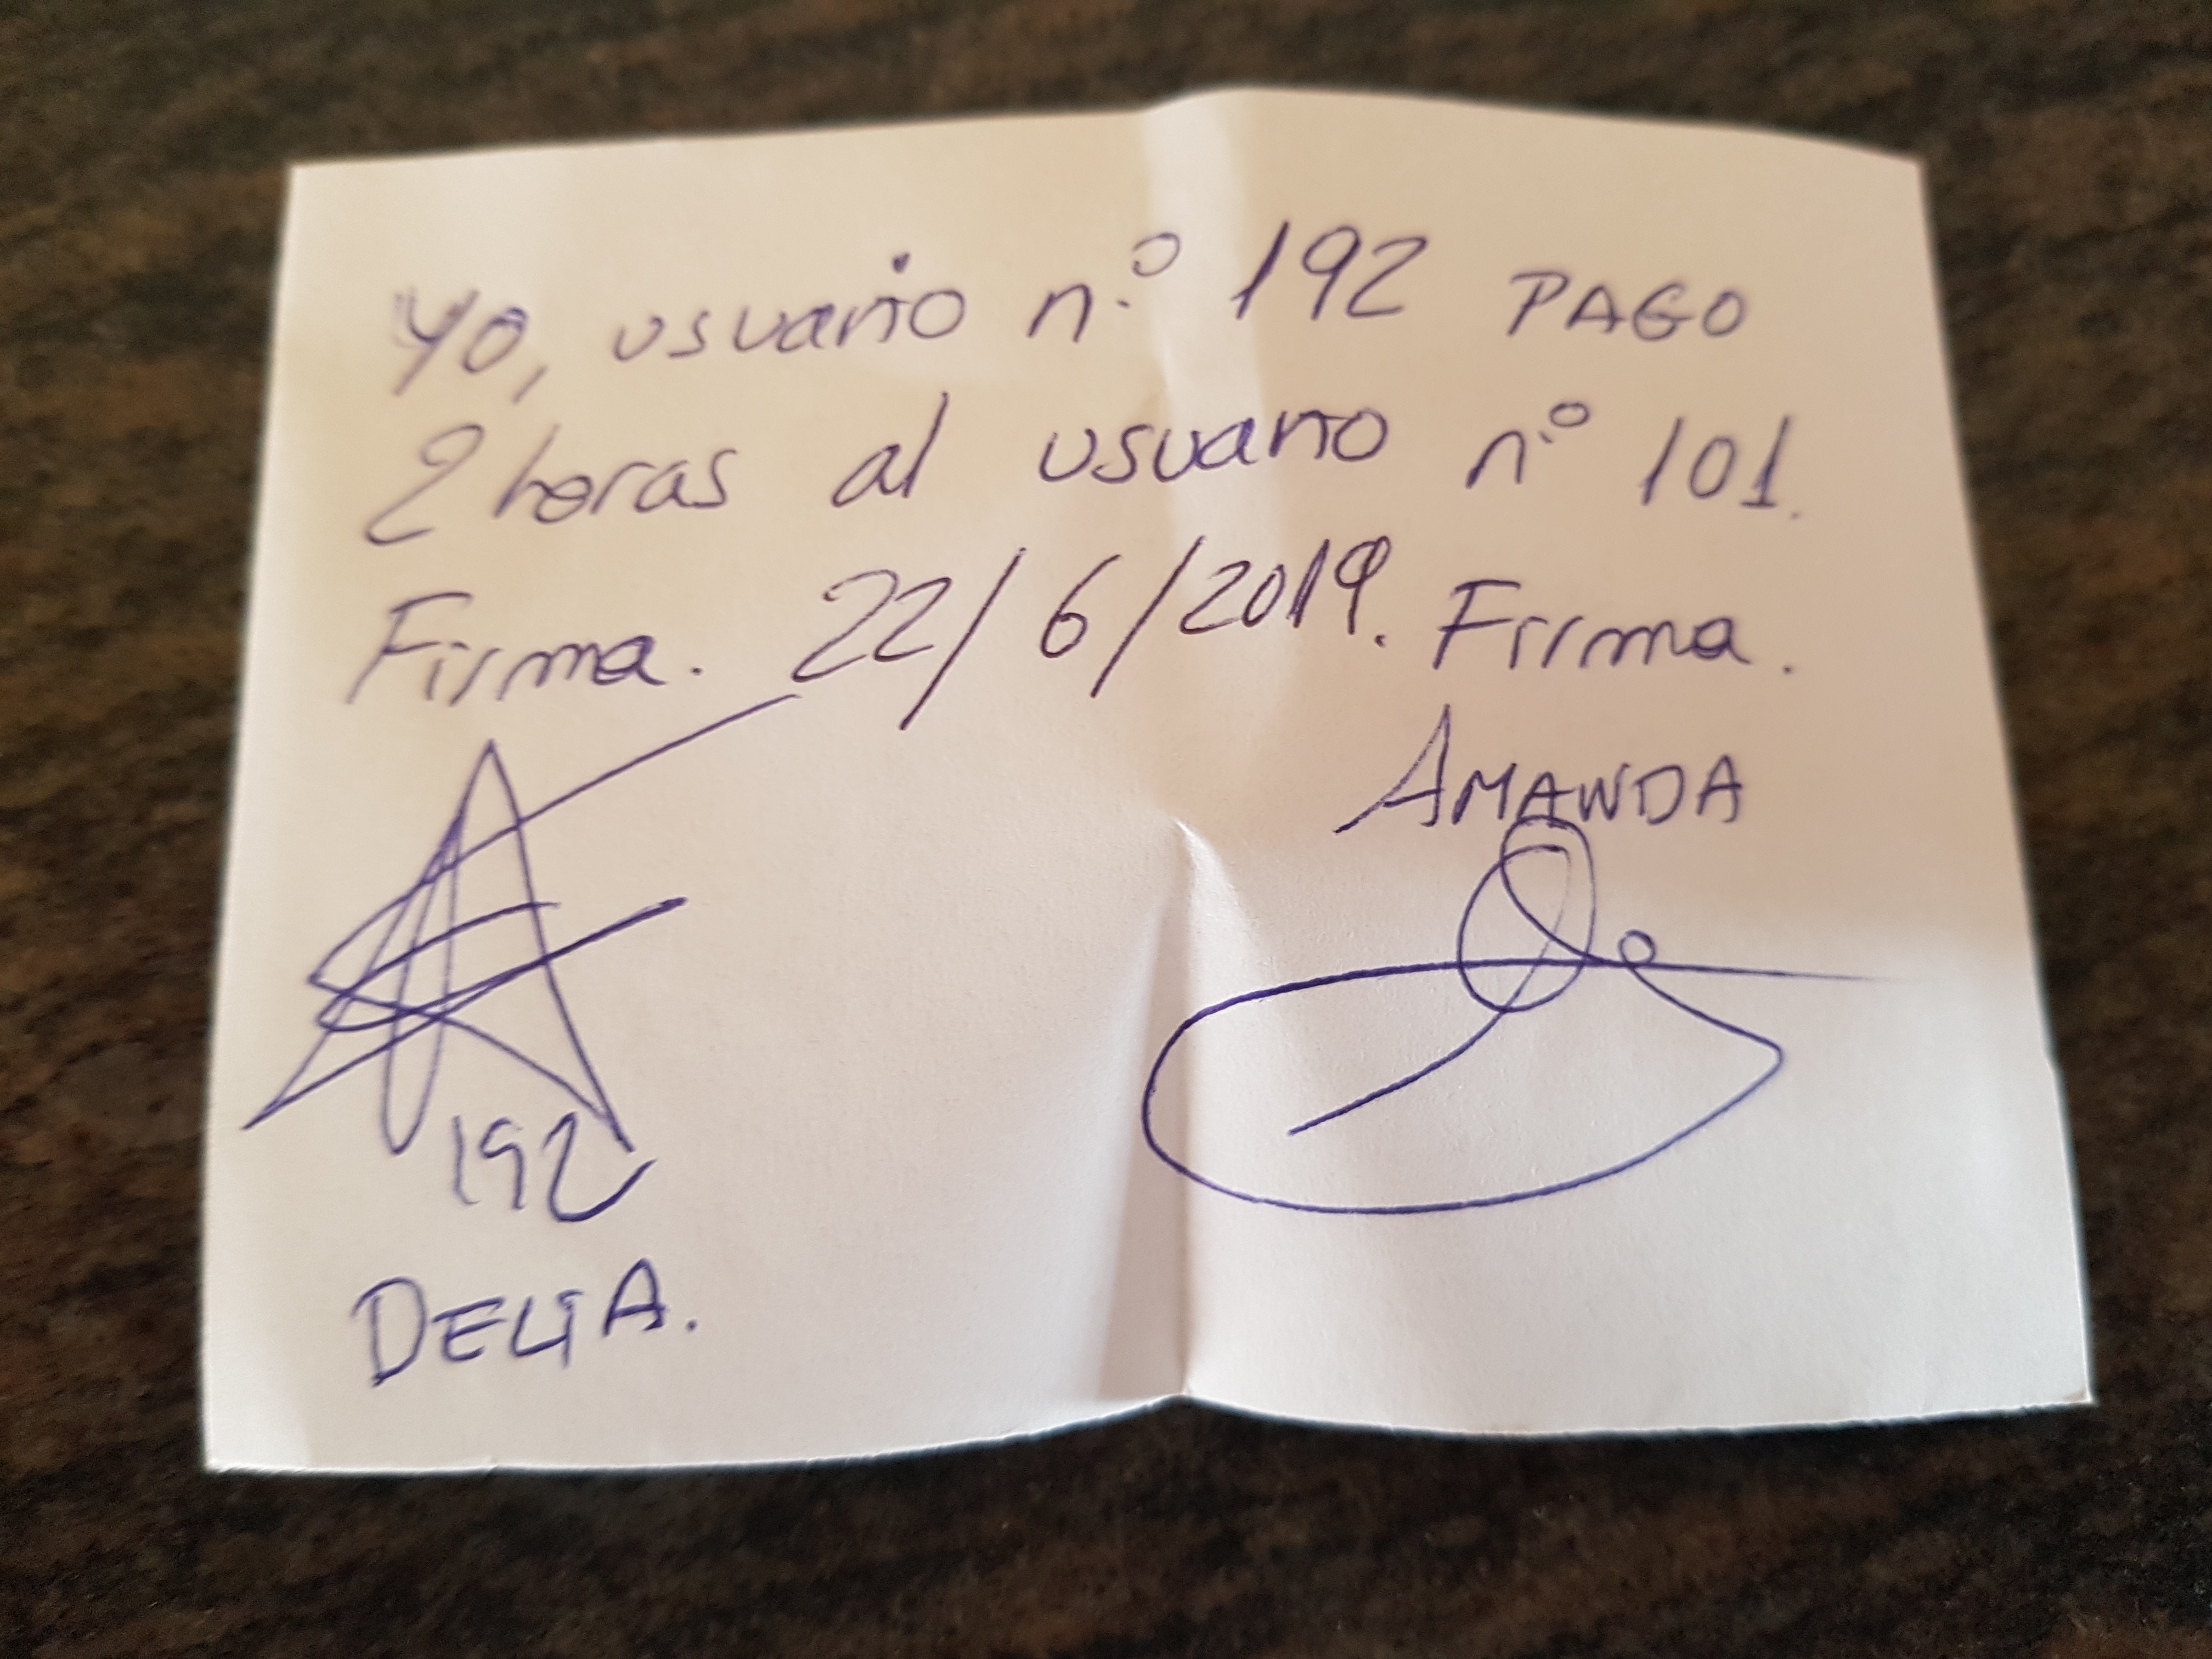 Yo, usuario n.º 192 PAGO
2 horas al usuario n.º 101.
Firma. 22/6/2019. Firma.
AMANDA
192
DELIA.